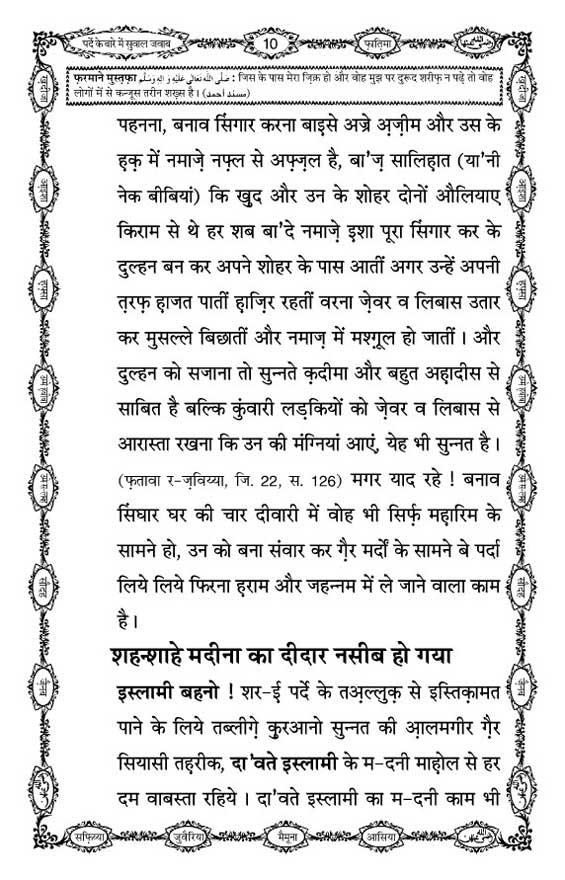 पर्दे के बारे में सुवाल जवाब
10
फ़ातिमा
फ़रमाने मुस्तफ़ा صَلَّى اللهُ تَعَالٰى عَلَيْهِ وَاٰلِهٖ وَسَلَّم : जिस के पास मेरा ज़िक्र हो और वोह मुझ पर दुरूद शरीफ़ न पढ़े तो वोह
लोगों में से कन्जूस तरीन शख़्स है। (مسند احمد)
पहनना, बनाव सिंगार करना बाइसे अज्रे अज़ीम और उस के
हक़ में नमाज़े नफ़्ल से अफ़्ज़ल है, बा'ज़ सालिहात (या'नी
नेक बीबियां) कि खुद और उन के शोहर दोनों औलियाए
किराम से थे हर शब बा'दे नमाज़े इशा पूरा सिंगार कर के
दुल्हन बन कर अपने शोहर के पास आतीं अगर उन्हें अपनी
त़रफ़ हाजत पातीं हाज़िर रहतीं वरना ज़ेवर व लिबास उतार
कर मुसल्ले बिछातीं और नमाज़ में मश्ग़ूल हो जातीं। और
दुल्हन को सजाना तो सुन्नते क़दीमा और बहुत अहादीस से
साबित है बल्कि कुंवारी लड़कियों को ज़ेवर व लिबास से
आरास्ता रखना कि उन की मंग्नियां आएं, येह भी सुन्नत है।
(फ़तावा र-ज़विय्या, जि. 22, स. 126) मगर याद रहे ! बनाव
सिंघार घर की चार दीवारी में वोह भी सिर्फ़ महारिम के
सामने हो, उन को बना संवार कर ग़ैर मर्दों के सामने बे पर्दा
लिये लिये फिरना हराम और जहन्नम में ले जाने वाला काम
है।
शहन्शाहे मदीना का दीदार नसीब हो गया
इस्लामी बहनो ! शर-ई पर्दे के तअ़ल्लुक़ से इस्तिक़ामत
पाने के लिये तब्लीग़े कुरआनो सुन्नत की आ़लमगीर ग़ैर
सियासी तहरीक, दा'वते इस्लामी के म-दनी माहोल से हर
दम वाबस्ता रहिये। दा'वते इस्लामी का म-दनी काम भी
सफ़िय्या
जुवैरिया
मैमूना
आसिया